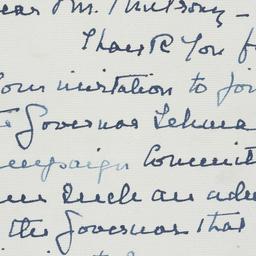 Dear Mr.
Thank you f
your invitation to joi
the Governor Lehma
campaign Committ
such an adm
the Governor that